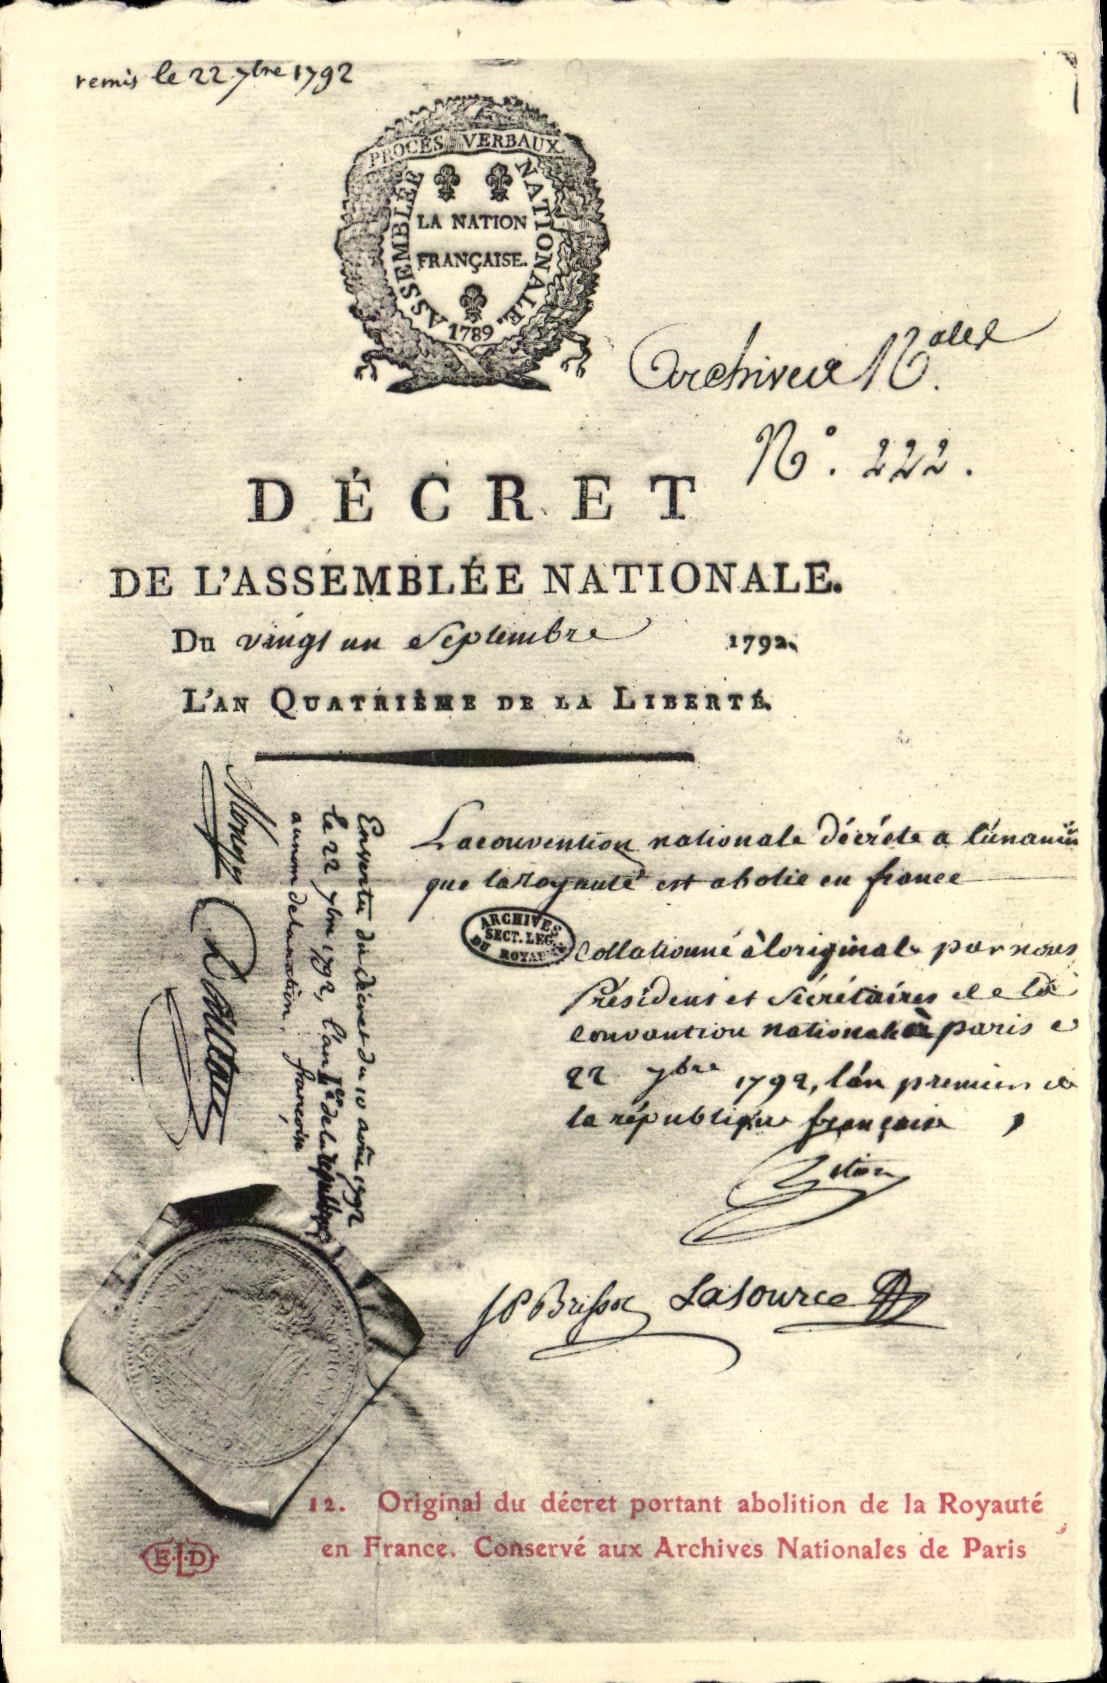 remis le 22 7bre 1792
PROCÈS VERBAUX
ASSEMBLÉE NATIONALE.
LA NATION
FRANÇAISE.
1789
Archives Nales
N°. 222.
DÉCRET
DE L'ASSEMBLÉE NATIONALE.
Du vingt un Septembre 1792.
L'AN QUATRIÈME DE LA LIBERTÉ.
La convention nationale décrète a l'unanim
que la Royauté est abolie en france
ARCHIVES
SECT. LEG.
DU ROYAU
Collationné à l'original par nous
Président et Sécrétaires de la
Convention nationale à paris ce
22 7bre 1792, l'an premier de
la république françoise
JP Brissot Lasource
En vertu du décret du 10 août 1792
le 22 7bre 1792, l'an 1er de la république
au nom de la nation. françoise
Monge Danton
12. Original du décret portant abolition de la Royauté
en France. Conservé aux Archives Nationales de Paris
ELD